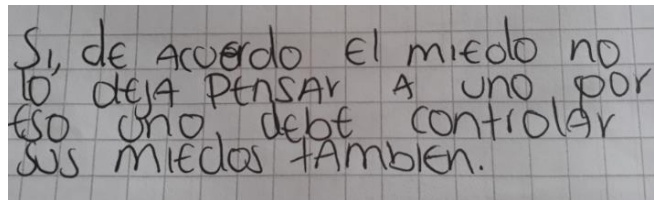 Si, de Acuerdo El miedo no
lo deja PEnSAr A uno por
Eso uno debe controlar
sus miedos tAmbien.